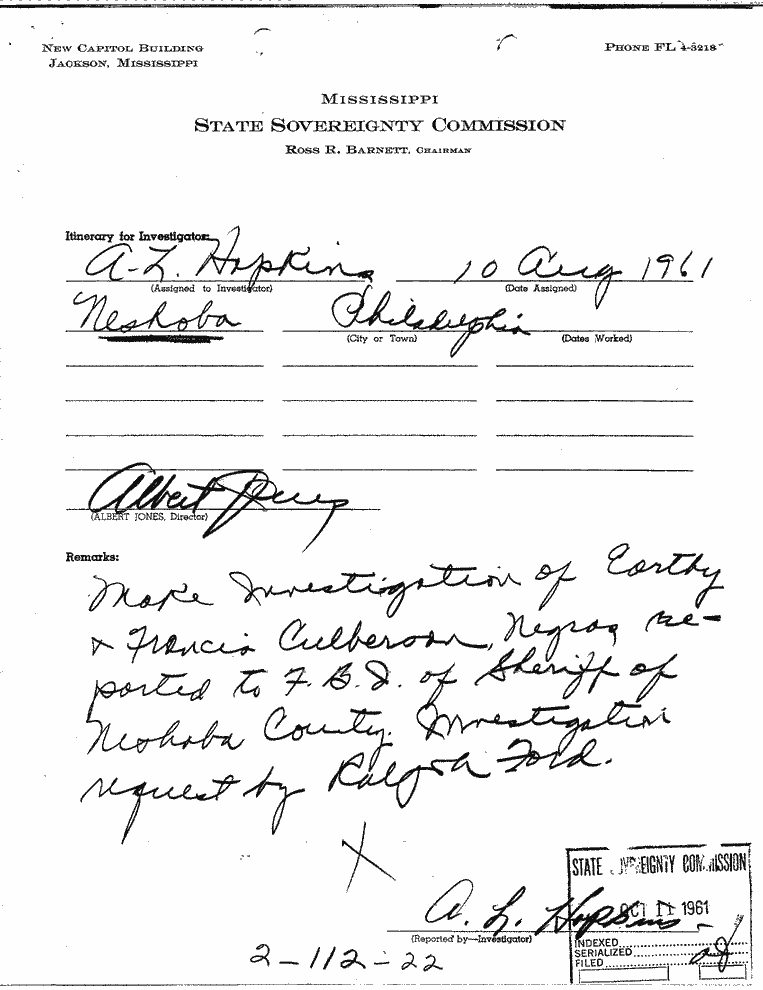 New Capitol Building
Jackson, Mississippi
Phone FL 4-3218
Mississippi
State Sovereignty Commission
Ross R. Barnett, Chairman
Itinerary for Investigator:
A. L. Hopkins 10 Aug 1961
(Assigned to Investigator) (Date Assigned)
Neshoba Philadelphia
(City or Town) (Dates Worked)
Albert Jones
(ALBERT JONES, Director)
Remarks:
Make Investigation of Earthy
& Francis Culberson, Negros re-
ported to F.B.I. of Sheriff of
Neshoba County. Investigation
request by Ralph Ford.
X
STATE SOVEREIGNTY COMMISSION
OCT 11 1961
A. L. Hopkins
(Reported by—Investigator)
INDEXED
SERIALIZED
FILED
2-112-22